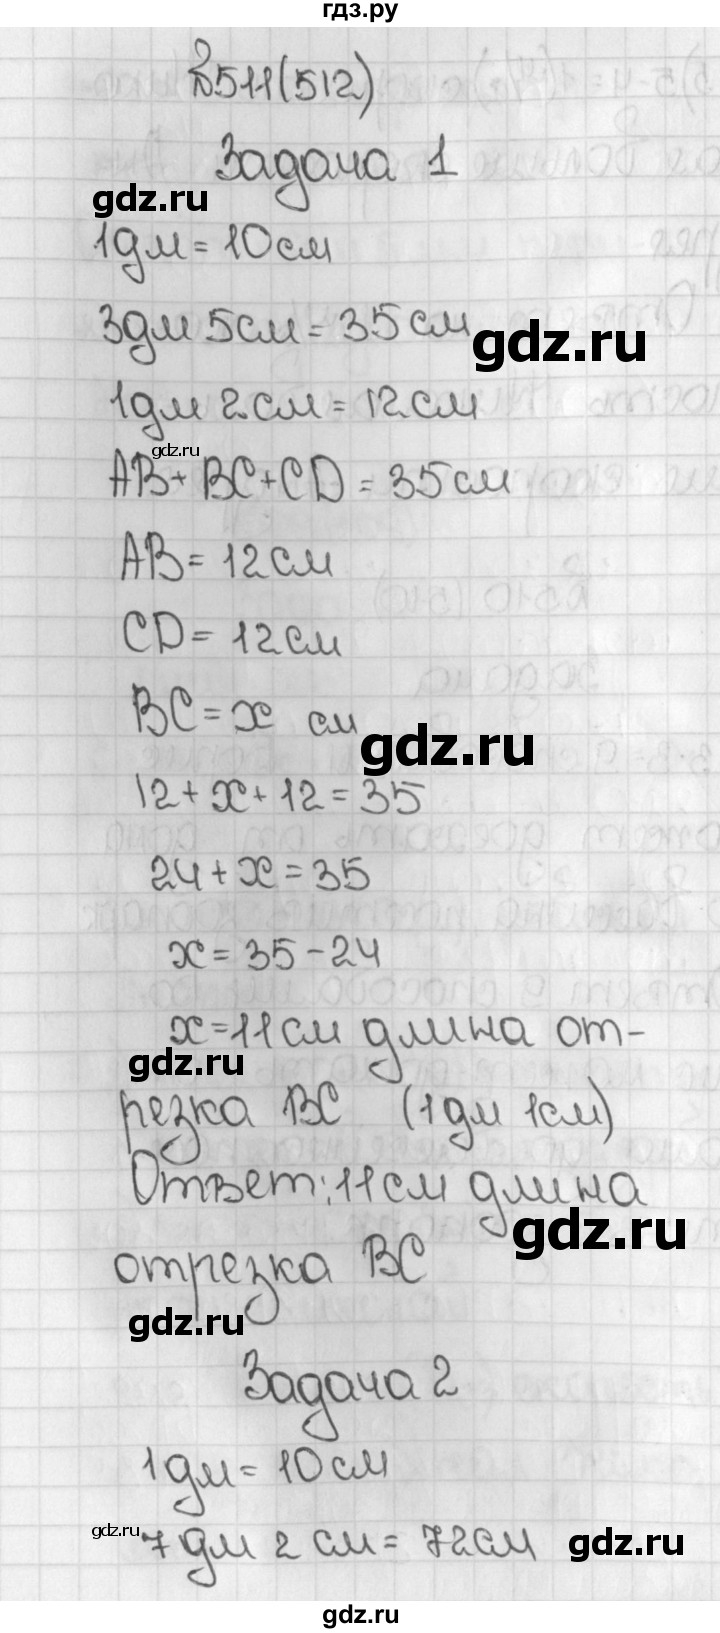 гдз.ру
№511(512)
Задача 1
gdz.ru
1дм = 10см
3дм 5см = 35см
gdz.ru
1дм 2см = 12см
gdz.ru
AB + BC + CD = 35см
AB = 12см
CD = 12см
BC = x см
gdz.ru
12 + x + 12 = 35
24 + x = 35
x = 35 - 24
x = 11см длина от-
gdz.ru
резка BC (1дм 1см)
Ответ: 11см длина
gdz.ru
отрезка BC
gdz.ru
Задача 2
1дм = 10см
gdz.ru
7 дм 2 см = 72см
gdz.ru
gdz.ru